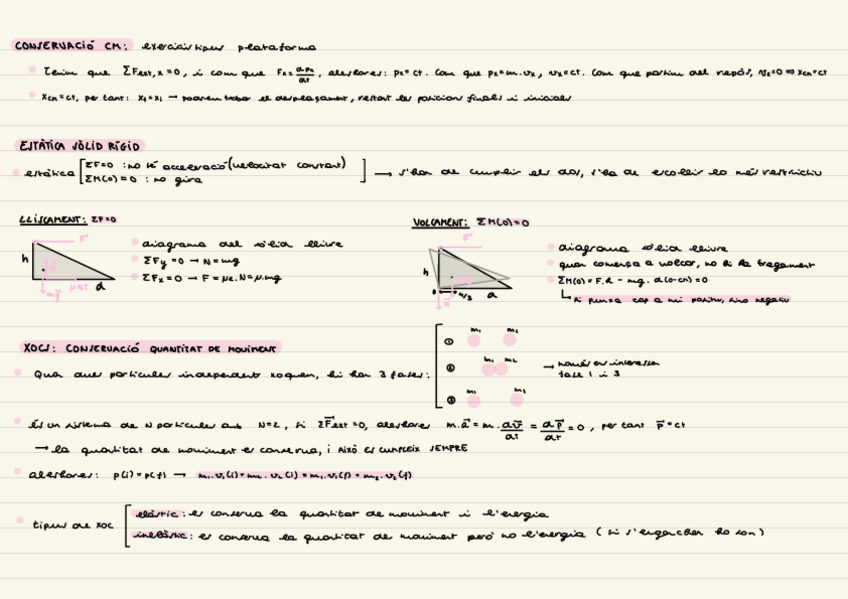 CONSERVACIÓ CM: exercicis tipus plataforma
Tenim que ΣFext,x = 0, i com que Fx = dpx/dt, aleshores: px = ct. Com que px = m·vx, vx = ct. Com que partim del repòs, vx = 0 ⇒ xcm = ct
xcm = ct, per tant: xi = xf → podrem trobar el desplaçament, restant les posicions finals i inicials
ESTÀTICA SÒLID RÍGID
estàtica [ ΣF=0 : no té acceleració (velocitat constant)
ΣM(O) = 0 : no gira ] → s'han de complir els dos, s'ha de escollir lo més restrictiu
LLISCAMENT: ΣF=0
diagrama del sòlid lliure
ΣFy = 0 → N = mg
ΣFx = 0 → F = μe·N = μ·mg
h
mg
d
VOLCAMENT: ΣM(O)=0
diagrama sòlid lliure
quan comença a volcar, no hi ha fregament
h
d
XOCS: CONSERVACIÓ QUANTITAT DE MOVIMENT
Quan dues partícules independent xoquen, hi han 3 fases:
① m₁ m₂
② m₁ m₂
③ m₁ m₂
→ només ens interessen
fase 1 i 3
És un sistema de N partícules amb N=2, si ΣFext = 0, aleshores m·a = m·dv/dt = dp/dt = 0, per tant p = ct
→ la quantitat de moviment es conserva, i AIXÒ ES CUMPLEIX SEMPRE
aleshores: p(i) = p(f) → m₁·v₁(i) + m₂·v₂(i) = m₁·v₁(f) + m₂·v₂(f)
tipus de xoc [ elàstic: es conserva la quantitat de moviment i l'energia
inelàstic: es conserva la quantitat de moviment però no l'energia (si s'enganxen ho son)